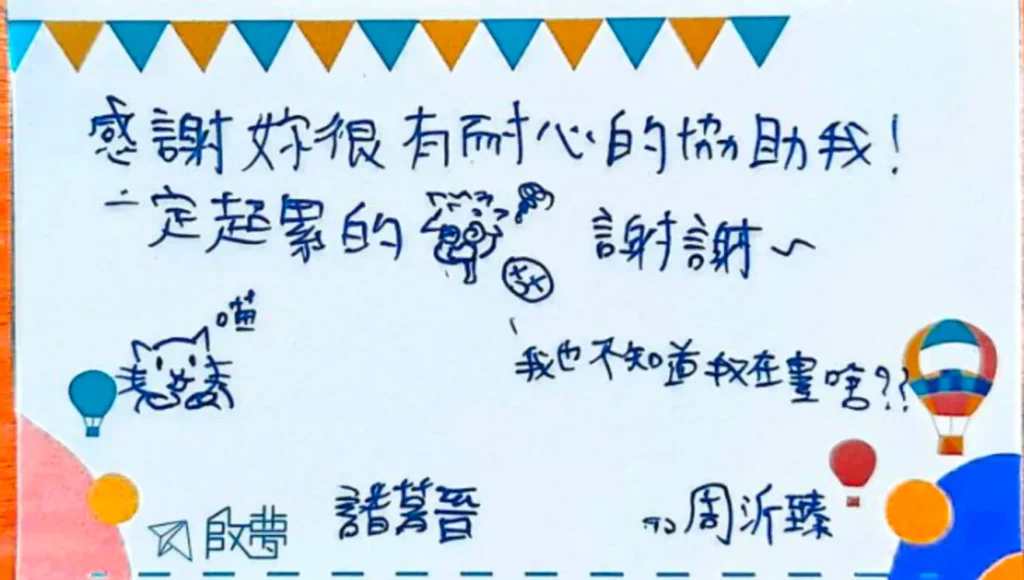 感謝妳很有耐心的協助我！
一定超累的 謝謝～
喵
我也不知道我在畫啥??
啟夢 諸葛晉 周沂臻